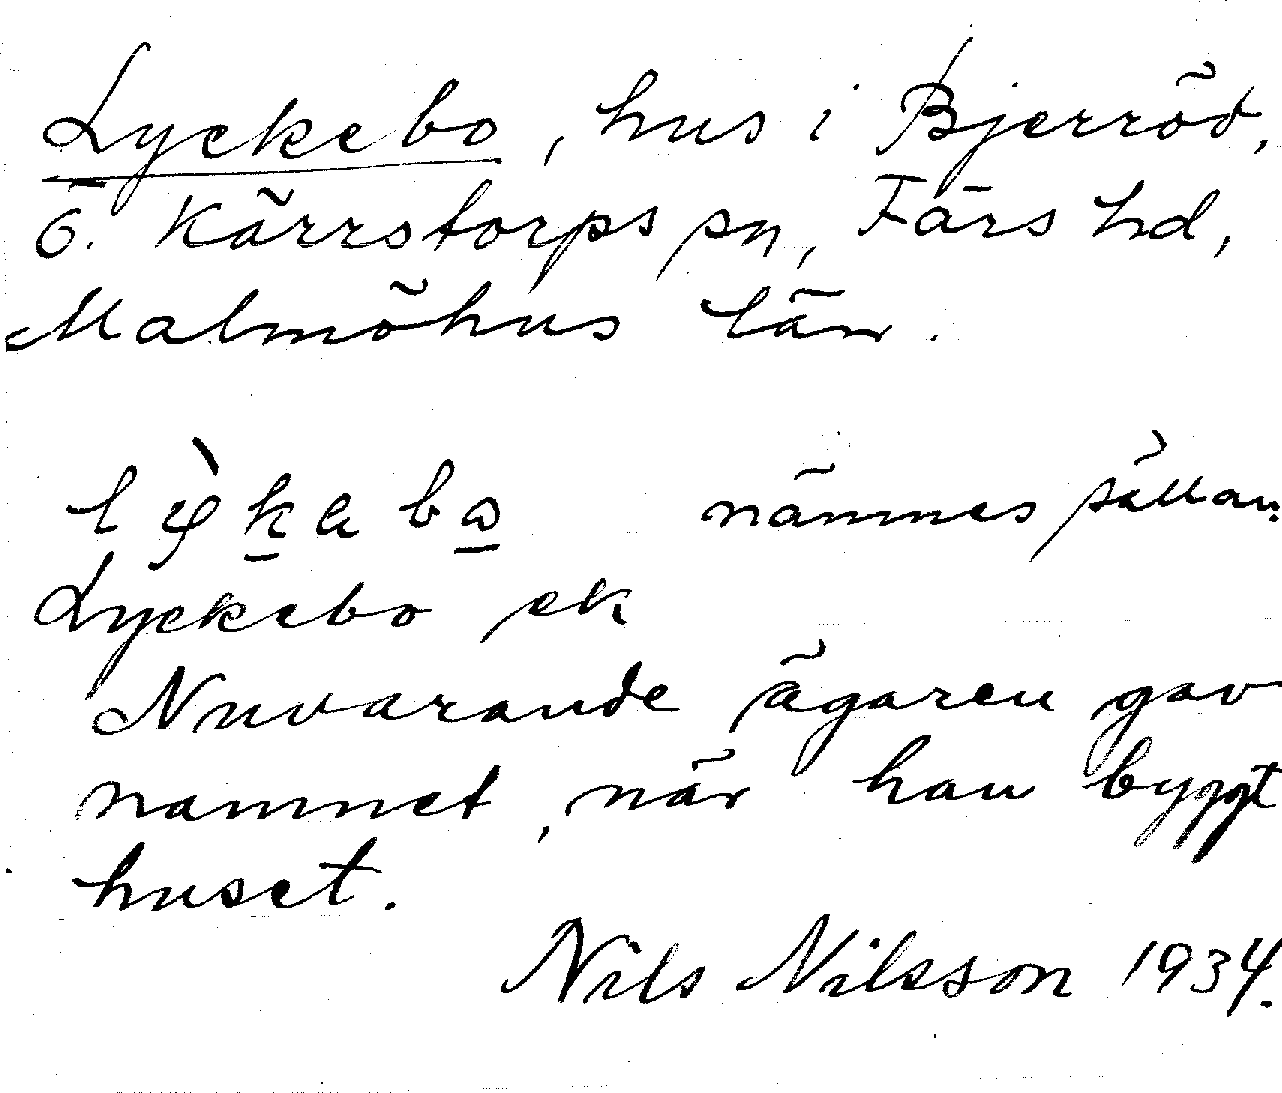 Lyckebo, hus i Bjerröd,
Ö. Kärrstorps sn, Färs hd,
Malmöhus län.
nämnes sällan.
Lyckebo ek
Nuvarande ägaren gav
namnet, när han byggt
huset.
Nils Nilsson 1934.